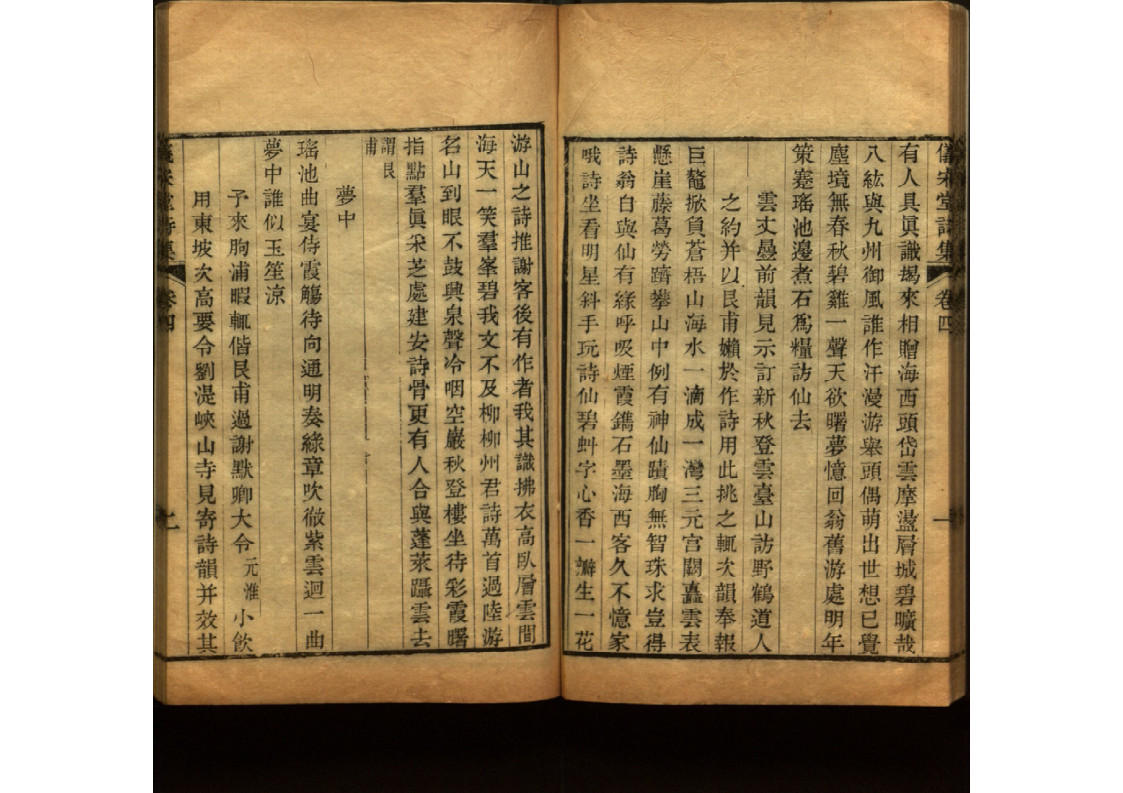 儀宋堂詩集 卷四 一
有人具眞識朅來相贈海西頭岱雲摩盪層城碧曠哉
八紘與九州御風誰作汗漫游舉頭偶萌出世想已覺
塵境無春秋碧雞一聲天欲曙夢憶回翁舊游處明年
策蹇瑤池邊煮石爲糧訪仙去
雲丈疊前韻見示訂新秋登雲臺山訪野鶴道人
之約并以艮甫嬾於作詩用此挑之輒次韻奉報
巨鼇掀負蒼梧山海水一滴成一灣三元宮闕矗雲表
懸崖藤葛勞躋攀山中例有神仙蹟胸無智珠求豈得
詩翁自與仙有緣呼吸煙霞鐫石墨海西客久不憶家
哦詩坐看明星斜手玩詩仙碧虯字心香一瓣生一花
游山之詩推謝客後有作者我其識拂衣高臥層雲間
海天一笑羣峯碧我文不及柳柳州君詩萬首過陸游
名山到眼不鼓興泉聲冷咽空巖秋登樓坐待彩霞曙
指點羣眞采芝處建安詩骨更有人合與蓬萊躡雲去
謂艮
甫
夢中
瑤池曲宴侍霞觴待向通明奏綠章吹徹紫雲迴一曲
夢中誰似玉笙涼
予來朐浦暇輒偕艮甫過謝默卿大令元淮小飲
用東坡次高要令劉湜峽山寺見寄詩韻并效其
卷四